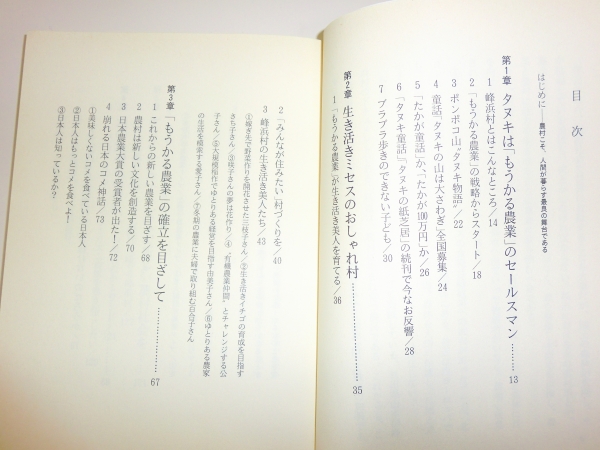 目次
はじめに――農村こそ、人間が暮らす最良の舞台である
第1章 タヌキは「もうかる農業」のセールスマン………13
1 峰浜村とはこんなところ/14
2 「もうかる農業」の戦略からスタート/18
3 ポンポコ山〝タヌキ物語〟/22
4 童話「タヌキの山は大さわぎ」全国募集/24
5 「たかが童話」か、「たかが100万円」か/26
6 「タヌキ童話」「タヌキの紙芝居」の続刊で今なお反響/28
7 ブラブラ歩きのできない子ども/30
第2章 生き活きミセスのおしゃれ村………35
1 「もうかる農業」が生き活き美人を育てる/36
2 「みんなが住みたい」村づくりを/40
3 峰浜村の生き活き美人たち/43
①嫁ぎ先で野菜作りを開花させた三枝子さん/②生き活きイチゴの育成を目指す
きち子さん/③咲子さんの夢は花作り/④〝有機農業仲間〟とチャレンジする公
子さん/⑤大規模稲作でゆとりある経営を目指す由美子さん/⑥ゆとりある農家
の生活を模索する愛子さん/⑦冬期の農業に夫婦で取り組む百合子さん
第3章 「もうかる農業」の確立を目ざして………67
1 これからの新しい農業を目ざす/68
2 農村は新しい文化を創造する/70
3 日本農業大賞の受賞者が出た!/72
4 崩れる日本のコメ神話/73
①美味しくないコメを食べている日本人
②日本人はもっとコメを食べよ!
③日本人は知っているか?